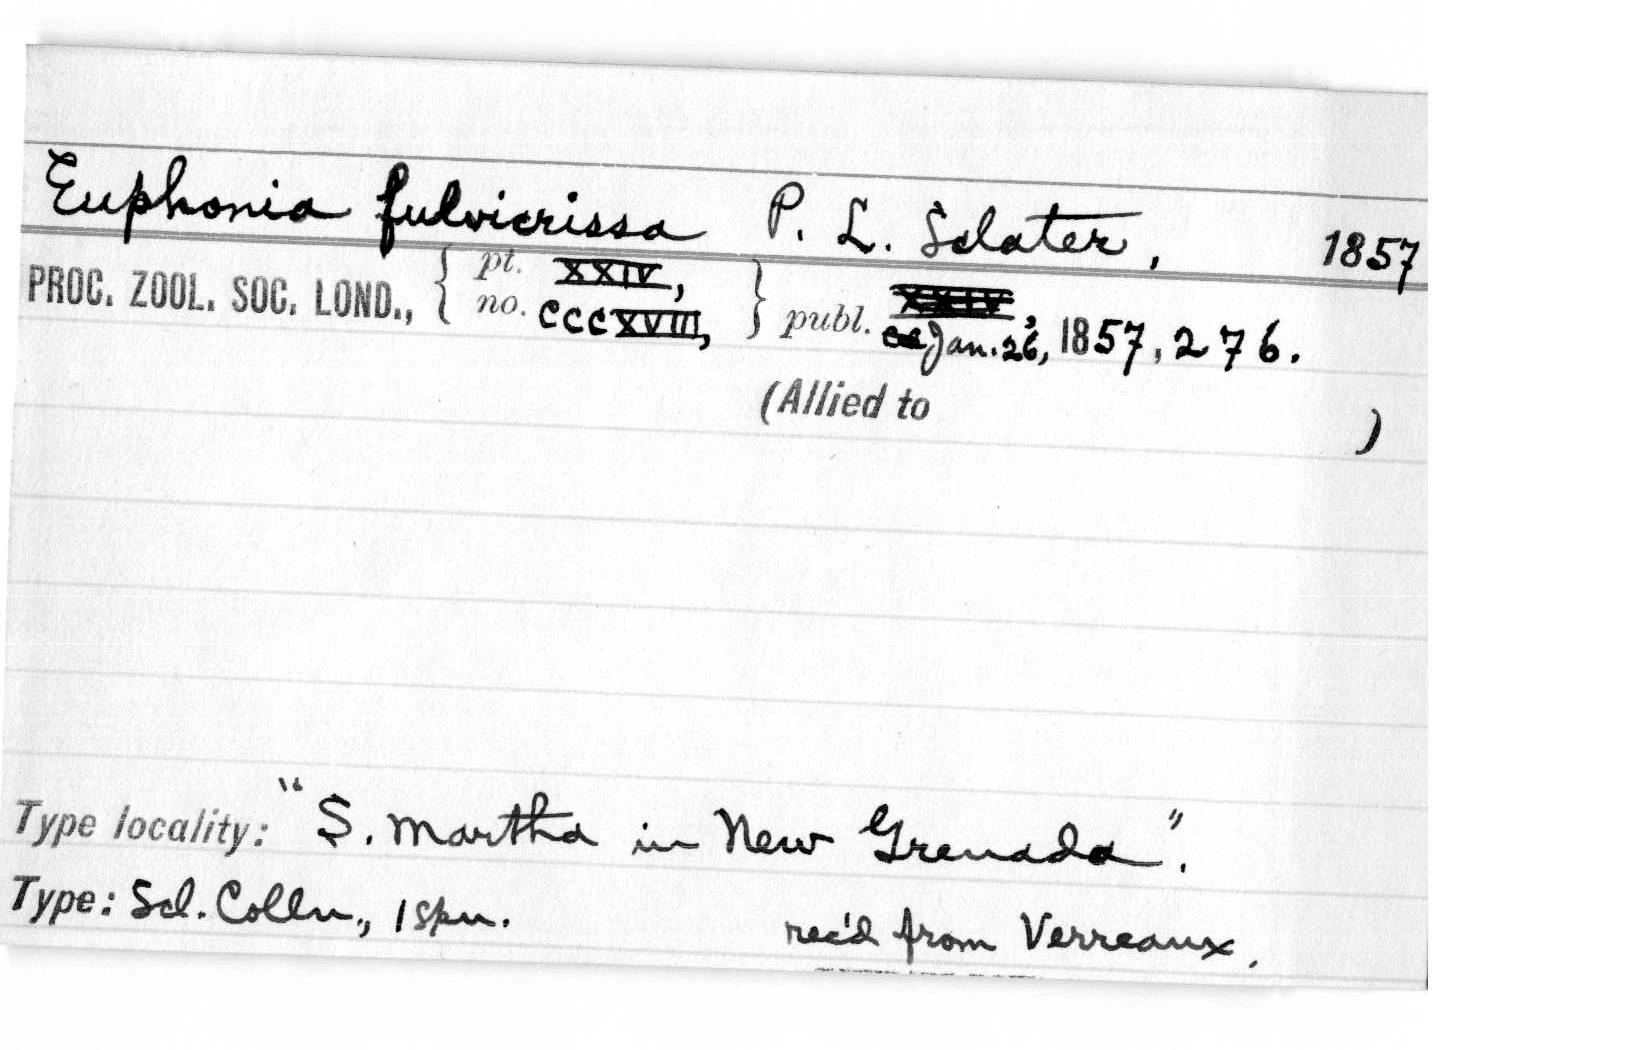 Euphonia fulvicrissa P. L. Sclater, 1857
PROC. ZOOL. SOC. LOND., { pt. XXIV, no. CCCXVIII, } publ. XXIV, Jan. 26, 1857, 276.
(Allied to )
Type locality: "S. Martha in New Grenada".
Type: Scl. Colln., 1 spm. rec'd from Verreaux.